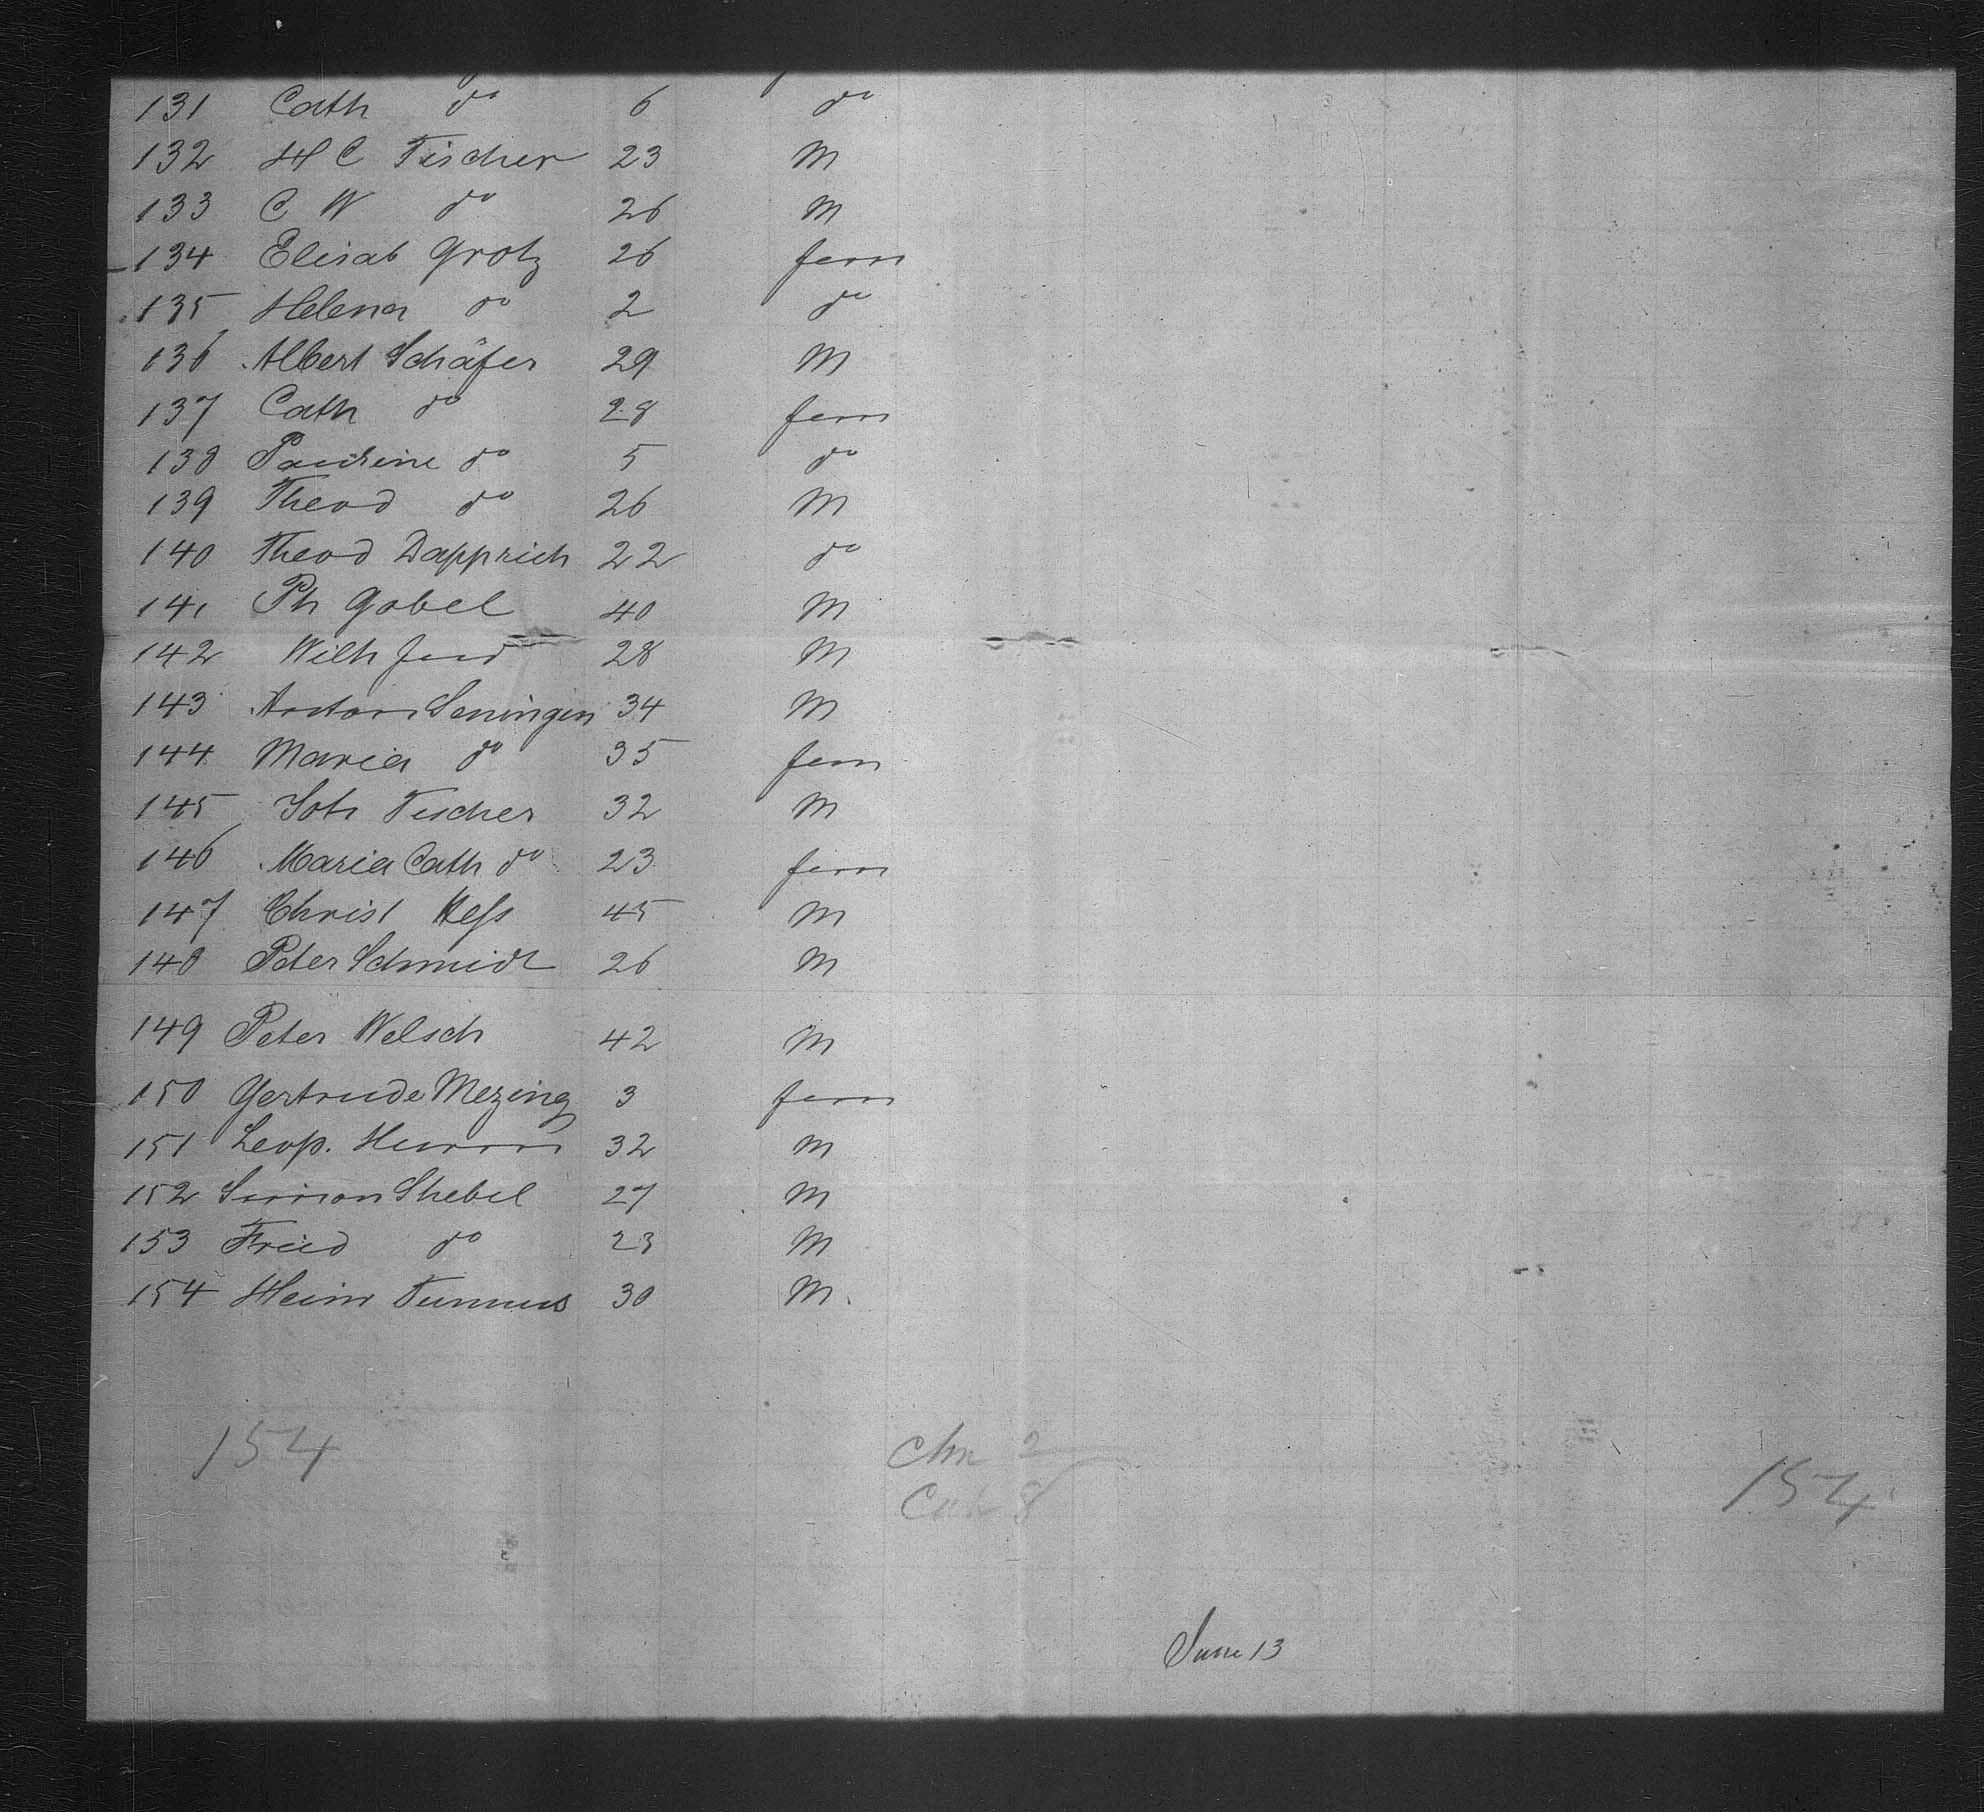 131 Cath do 6 do
132 H C Fischer 23 M
133 C W do 26 M
134 Elisab Grotz 26 fem
135 Helena do 2 do
136 Albert Schäfer 29 M
137 Cath do 28 fem
138 Pauline do 5 do
139 Theod do 26 M
140 Theod Dapprich 22 do
141 Ph Gobel 40 M
142 Wilh Jud 28 M
143 Anton Seningen 34 M
144 Maria do 35 fem
145 Joh Fischer 32 M
146 Maria Cath do 23 fem
147 Christ Hess 45 M
148 Peter Schmidt 26 M
149 Peter Welsch 42 M
150 Gertrude Mezing 3 fem
151 Leop. 32 M
152 Simon Shebel 27 M
153 Fried do 23 M
154 Heinr 30 M.
154
2
8
154
June 13